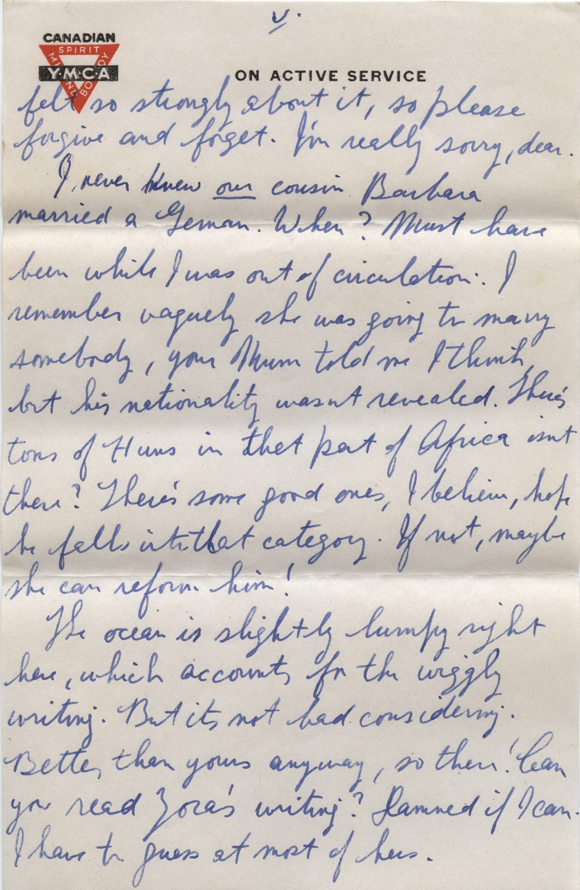 v.
CANADIAN
SPIRIT
MIND
BODY
Y·M·C·A
ON ACTIVE SERVICE
felt so strongly about it, so please
forgive and forget. I'm really sorry, dear.
I never knew our cousin Barbara
married a German. When? Must have
been while I was out of circulation. I
remember vaguely she was going to marry
somebody, your Mum told me I think,
but his nationality wasn't revealed. There's
tons of Huns in that part of Africa isnt
there? There's some good ones, I believe, hope
he falls into that category. If not, maybe
she can reform him!
The ocean is slightly lumpy right
here, which accounts for the wiggly
writing. But its not bad considering.
Better than yours anyway, so there! Can
you read Zora's writing? Damned if I can.
I have to guess at most of hers.